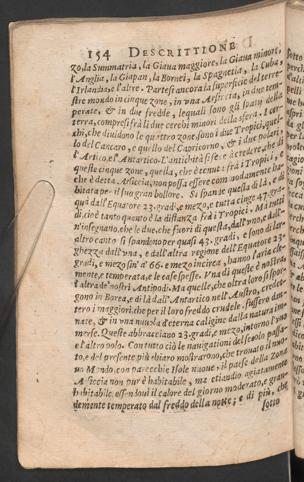 154 DESCRITTIONE
zo, la Summatria, la Giaua maggiore, la Giaua minore,
l'Anglia, la Giapan, la Bornei, la Spagnetia, la Cuba,
l'Irlandia, e l'altre. Partesi ancora la superficie del terre-
stre mondo in cinque zone, in vna Arsiccia, in due tem-
perate, & in due fredde, lequali sono gli spatij della
terra, compresi frà li due cerchi minori della sfera. I cer-
chi, che diuidono le quattro zone, sono i due Tropici, quel-
lo del Cancaro, e quello del Capricorno, & i due polari,
l'Artico, e l'Antartico. L'antichità si fè à credere, che di
queste cinque zone, quella, che è tenuta frà i Tropici, e
che è detta Arsiccia, non possa essere comodamente ha-
bitata per il suo gran bollore. Si spande questa di là, e di
quà dall'Equatore 23. gradi, e mezo, e tutta cinge 47. gra-
di, cioè tanto quanto è la distanza frà i Tropici. Ma tutti
n'insegnano, che le due, che fuori di questa, dall'vno, e dall'
altro canto si spandono per quasi 43. gradi, e sono di lar-
ghezza dall'vna, e dall'altra regione dall'Equatore 23.
gradi, e mezo sin' a' 66. e mezo incirca, hanno l'aria cle-
mente, temperata, e le case spesse. Vna di queste è nostra
l'altra de' nostri Antipodi. Ma quelle, che oltra loro si spor-
gono in Borea, e di là dall'Antartico nell'Austro, crede-
tero i maggiori che per il loro freddo crudele, fussero dan-
nate, & in vna nuuola d'eterna caligine dalla natura im-
merse. Queste abbracciano 23. gradi, e mezo, intorno l'vno
e l'altro polo. Con tutto ciò le nauigationi del secolo passa-
to, e del presente più chiaro mostrarono, che trouato il nuo-
uo Mondo, con parecchie Isole nuoue, il paese della Zona
Arsiccia non pur è habitabile, ma etiandio agiatamente
habitabile, essendoui il calore del giorno moderato, e gran-
demente temperato dal freddo della notte; e di più, che
sotto